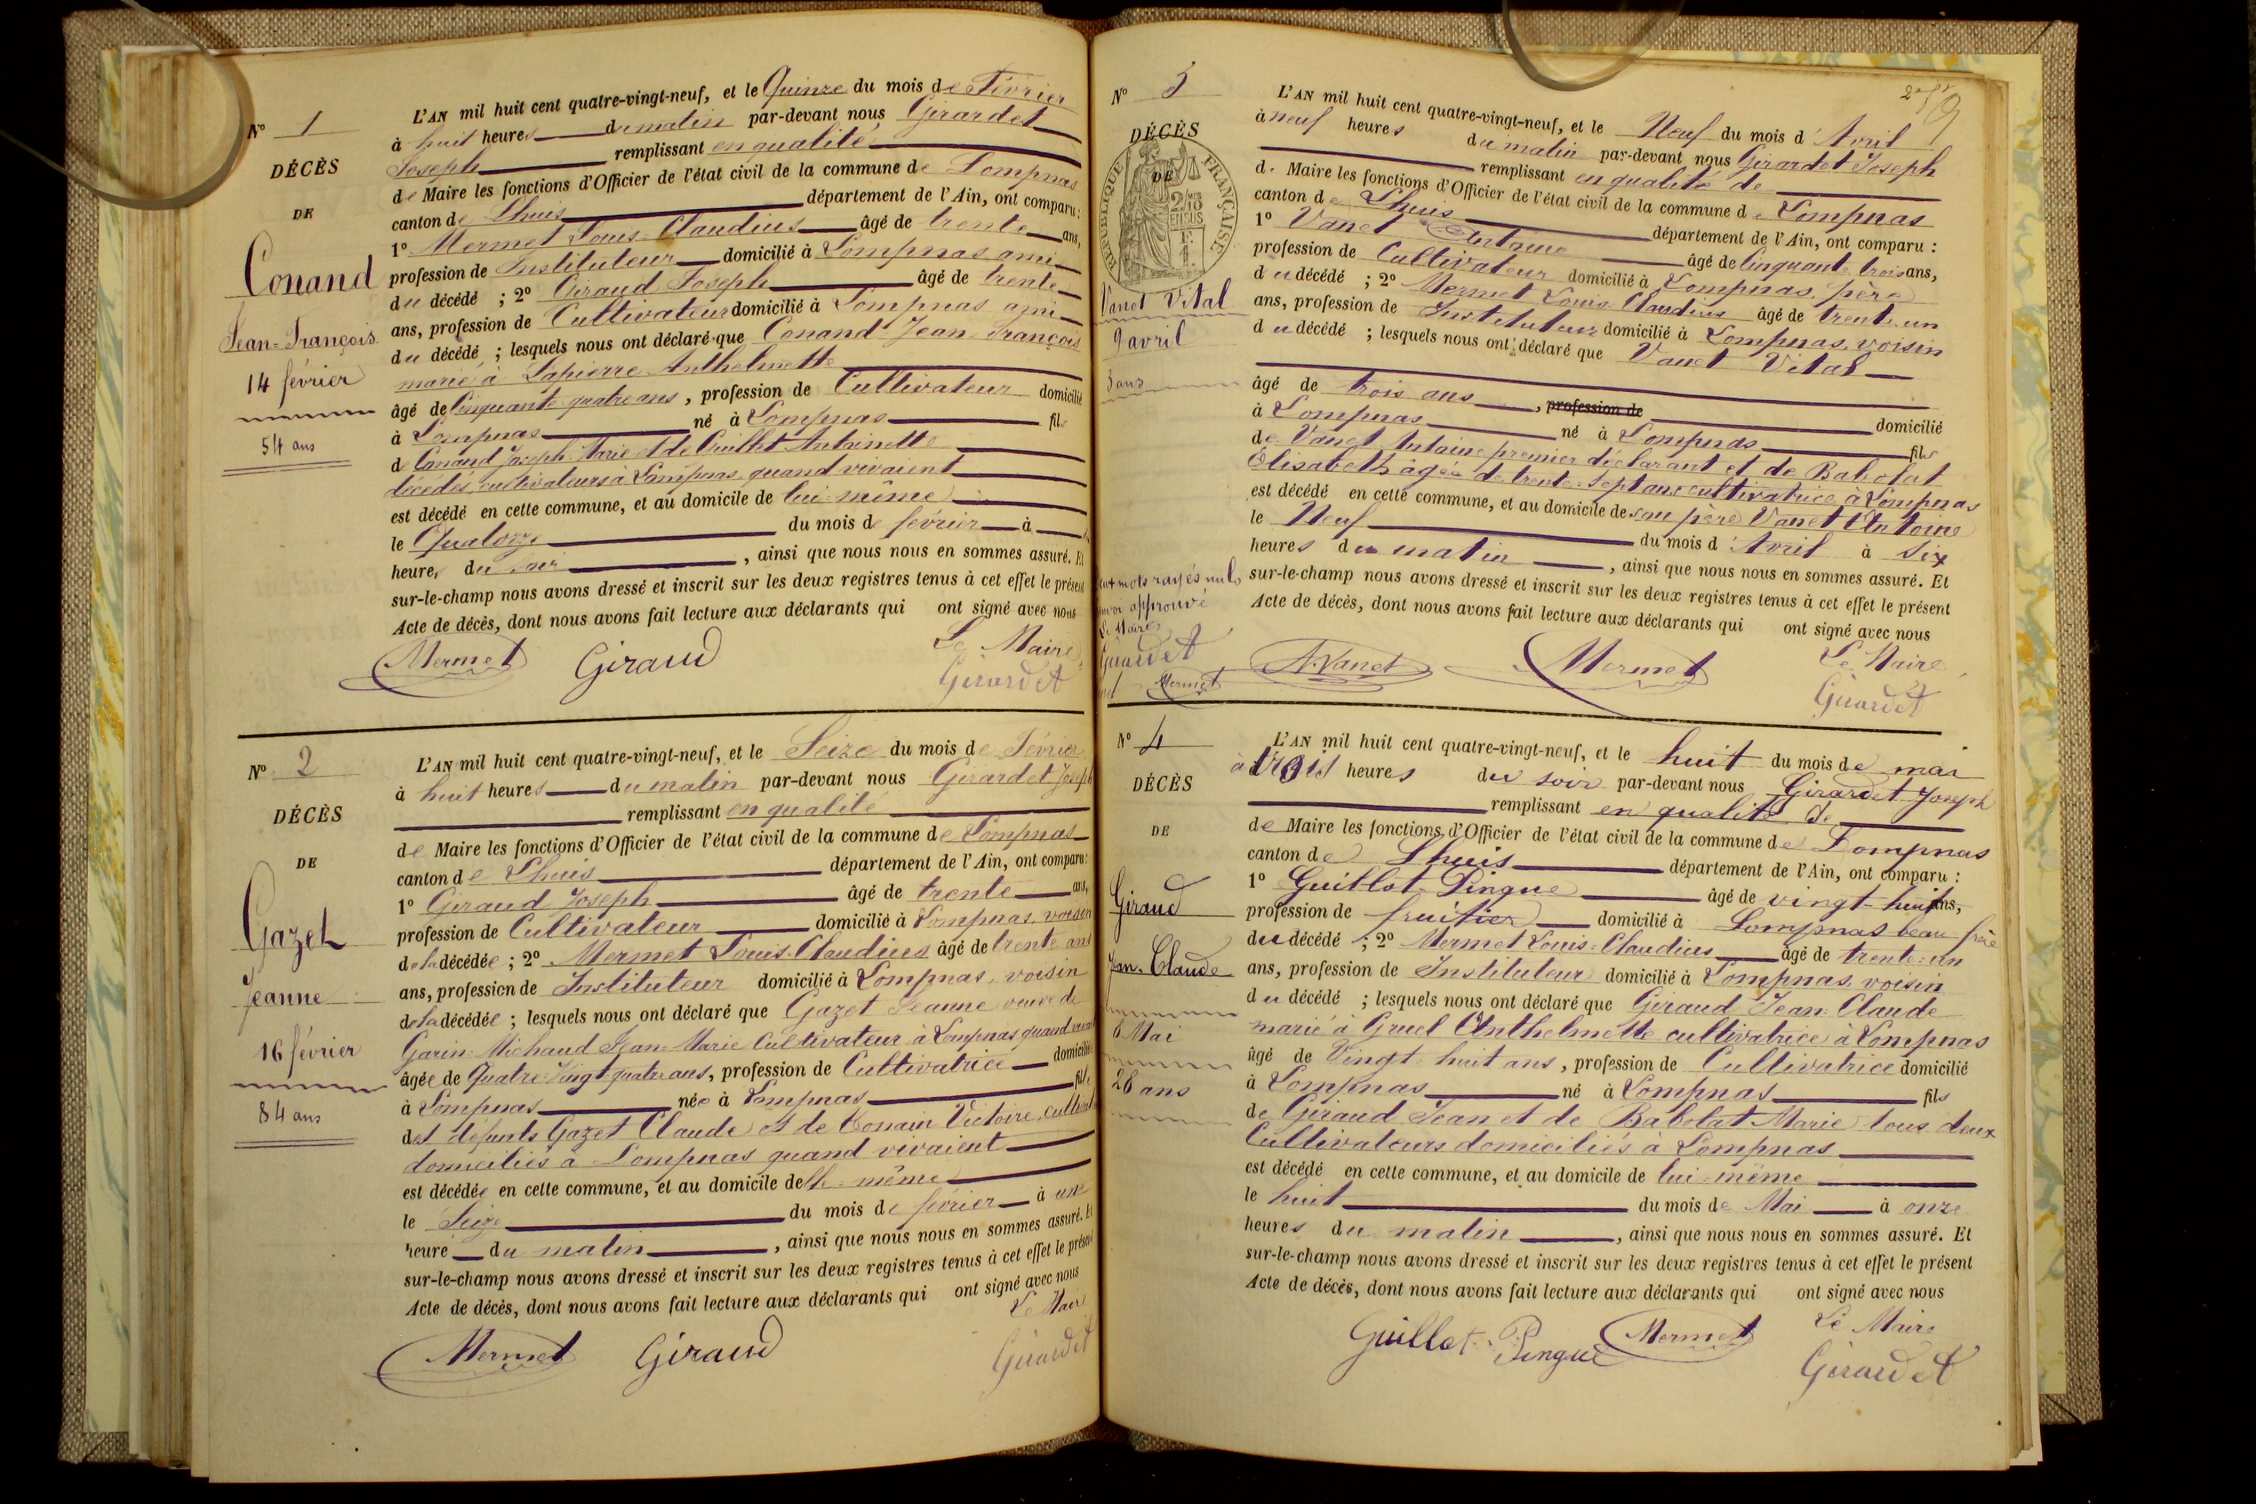 N° 1
DÉCÈS
DE
Conand
Jean-François
14 février
54 ans
L'AN mil huit cent quatre-vingt-neuf, et le Quinze du mois de Février
à huit heures du matin par-devant nous Girardet
Joseph remplissant en qualité
de Maire les fonctions d'Officier de l'état civil de la commune de Lompnas
canton de Lhuis département de l'Ain, ont comparu :
1° Mermet Louis-Claudius âgé de trente ans,
profession de Instituteur domicilié à Lompnas ami
du décédé ; 2° Giraud Joseph âgé de trente
ans, profession de Cultivateur domicilié à Lompnas ami
du décédé ; lesquels nous ont déclaré que Conand Jean-François
marié à Lapierre Anthelmette
âgé de Cinquante quatre ans, profession de Cultivateur domicilié
à Lompnas né à Lompnas fils
de Conand Joseph Marie et de Guillet Antoinette
décédés, cultivateurs à Lompnas quand vivaient
est décédé en cette commune, et au domicile de lui-même
le Quatorze du mois de février à
heures du soir , ainsi que nous nous en sommes assuré. Et
sur-le-champ nous avons dressé et inscrit sur les deux registres tenus à cet effet le présent
Acte de décès, dont nous avons fait lecture aux déclarants qui ont signé avec nous
Le Maire
Mermet Giraud Girardet
N° 2
DÉCÈS
DE
Gazet
Jeanne
16 février
84 ans
L'AN mil huit cent quatre-vingt-neuf, et le Seize du mois de Février
à huit heures du matin par-devant nous Girardet Joseph
remplissant en qualité
de Maire les fonctions d'Officier de l'état civil de la commune de Lompnas
canton de Lhuis département de l'Ain, ont comparu :
1° Giraud Joseph âgé de trente ans,
profession de Cultivateur domicilié à Lompnas, voisin
de la décédée ; 2° Mermet Louis-Claudius âgé de trente ans
ans, profession de Instituteur domicilié à Lompnas, voisin
de la décédée ; lesquels nous ont déclaré que Gazet Jeanne veuve de
Garin-Michaud Jean-Marie Cultivateur à Lompnas quand vivait
âgée de Quatre-Vingt-quatre ans, profession de Cultivatrice domiciliée
à Lompnas née à Lompnas fille
des défunts Gazet Claude et de Conain Victoire
domiciliés à Lompnas quand vivaient
est décédée en cette commune, et au domicile de elle-même
le Seize du mois de février à une
heure du matin , ainsi que nous nous en sommes assuré. Et
sur-le-champ nous avons dressé et inscrit sur les deux registres tenus à cet effet le présent
Acte de décès, dont nous avons fait lecture aux déclarants qui ont signé avec nous
Le Maire
Mermet Giraud Girardet
N° 3
DÉCÈS
DE
RÉPUBLIQUE FRANÇAISE
Vanet Vital
9 avril
3 ans
L'AN mil huit cent quatre-vingt-neuf, et le Neuf du mois d'Avril
à neuf heures du matin par-devant nous Girardet Joseph
remplissant en qualité de
de Maire les fonctions d'Officier de l'état civil de la commune de Lompnas
canton de Lhuis département de l'Ain, ont comparu :
1° Vanet Antoine âgé de Cinquante trois ans,
profession de Cultivateur domicilié à Lompnas, père
du décédé ; 2° Mermet Louis-Claudius âgé de trente-un
ans, profession de Instituteur domicilié à Lompnas, voisin
du décédé ; lesquels nous ont déclaré que Vanet Vital
âgé de trois ans , profession de domicilié
à Lompnas né à Lompnas fils
de Vanet Antoine premier déclarant et de Babolat
Élisabeth âgée de trente-sept ans cultivatrice à Lompnas
est décédé en cette commune, et au domicile de son père Vanet Antoine
le Neuf du mois d'Avril à six
heures du matin , ainsi que nous nous en sommes assuré. Et
sur-le-champ nous avons dressé et inscrit sur les deux registres tenus à cet effet le présent
Acte de décès, dont nous avons fait lecture aux déclarants qui ont signé avec nous
mots rayés nuls
approuvé
Le Maire
Girardet
Mermet
A. Vanet Mermet Le Maire
Girardet
N° 4
DÉCÈS
DE
Giraud
Jean-Claude
8 Mai
28 ans
L'AN mil huit cent quatre-vingt-neuf, et le huit du mois de mai
à trois heures du soir par-devant nous Girardet Joseph
remplissant en qualité de
de Maire les fonctions d'Officier de l'état civil de la commune de Lompnas
canton de Lhuis département de l'Ain, ont comparu :
1° Guillot-Pingue âgé de vingt-huit ans,
profession de fruitier domicilié à Lompnas beau frère
du décédé ; 2° Mermet Louis-Claudius âgé de trente-un
ans, profession de Instituteur domicilié à Lompnas, voisin
du décédé ; lesquels nous ont déclaré que Giraud Jean-Claude
marié à Gruel Anthelmette cultivatrice à Lompnas
âgé de Vingt-huit ans, profession de Cultivatrice domicilié
à Lompnas né à Lompnas fils
de Giraud Jean et de Babolat Marie tous deux
Cultivateurs domiciliés à Lompnas
est décédé en cette commune, et au domicile de lui-même
le huit du mois de Mai à onze
heures du matin , ainsi que nous nous en sommes assuré. Et
sur-le-champ nous avons dressé et inscrit sur les deux registres tenus à cet effet le présent
Acte de décès, dont nous avons fait lecture aux déclarants qui ont signé avec nous
Le Maire
Guillot-Pingue Mermet Girardet